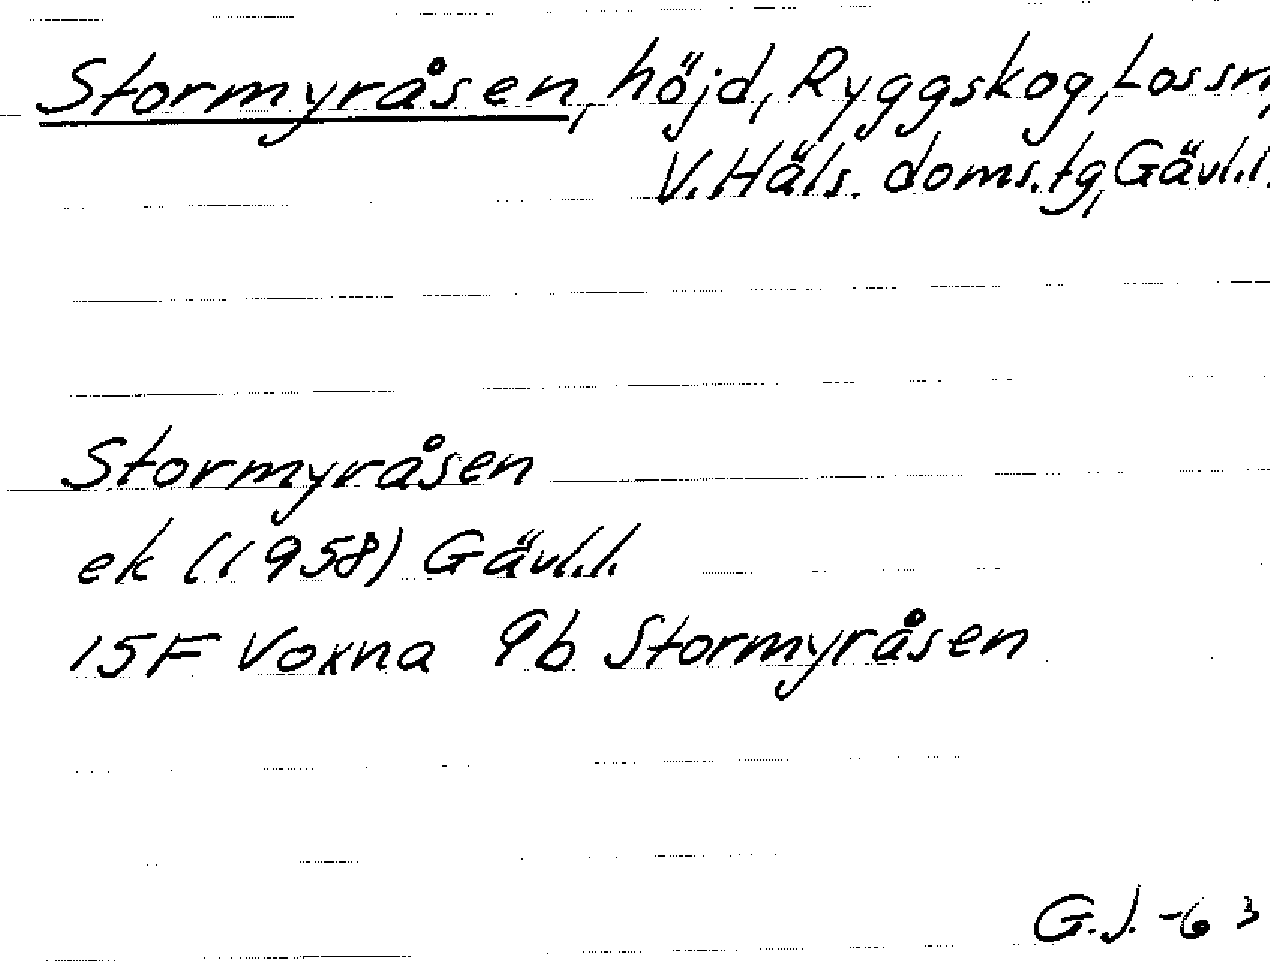 Stormyråsen, höjd, Ryggskog, Lossn,
V. Häls. doms.tg, Gävl.l.
Stormyråsen
ek (1958) Gävl.l.
15F Voxna 9b Stormyråsen
G.J. -63